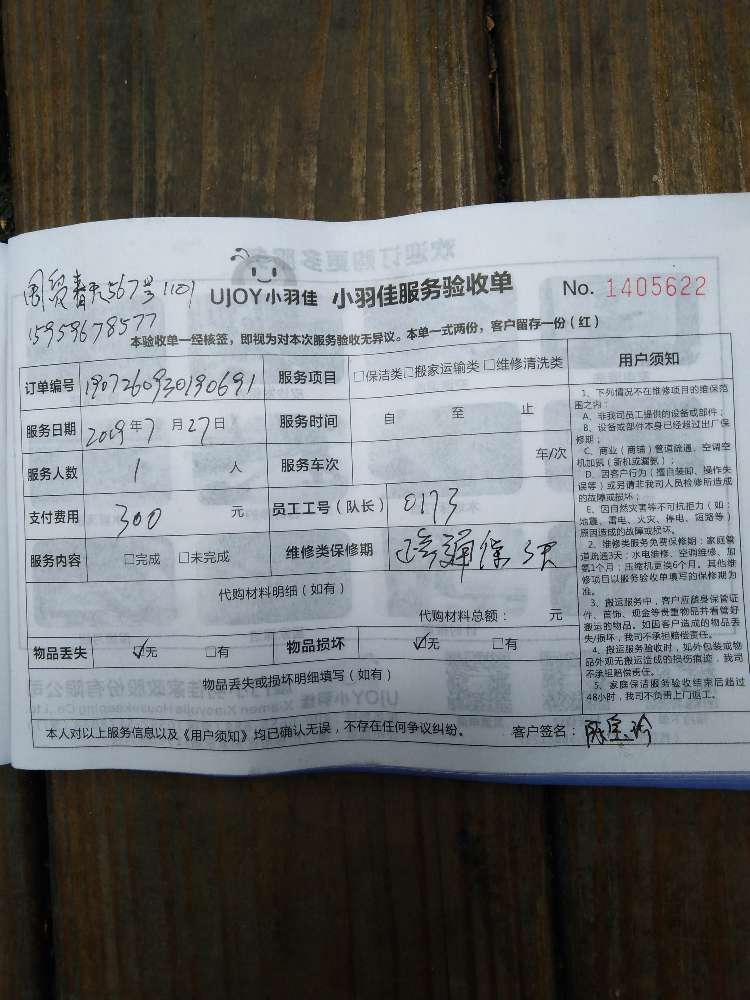 国贸春天567号1101
15959678577
UJOY小羽佳 小羽佳服务验收单 No. 1405622
本验收单一经核签，即视为对本次服务验收无异议。本单一式两份，客户留存一份（红）
订单编号 1907260930190691 服务项目 □保洁类□搬家运输类 □维修清洗类
服务日期 2019年7月27日 服务时间 自 至 止
服务人数 1 人 服务车次 车/次
支付费用 300 元 员工工号（队长） 0173
服务内容 □完成 □未完成 维修类保修期 保3天
代购材料明细（如有）
代购材料总额： 元
物品丢失 ☑无 □有 物品损坏 ☑无 □有
物品丢失或损坏明细填写（如有）
本人对以上服务信息以及《用户须知》均已确认无误，不存在任何争议纠纷。 客户签名：
用户须知
1、下列情况不在维修项目的维保范
围之内：
A、非我司员工提供的设备或部件；
B、设备或部件本身已经超过出厂保
修期；
C、商业（商铺）管道疏通、空调空
机加氨（新机或漏氨）；
D、因客户行为（擅自装卸、操作失
误等）或另请非我司人员检修所造成
的故障或损坏；
E、因自然灾害等不可抗拒力（如：
地震、雷电、火灾、停电、短路等）
原因造成的故障或损坏。
2、维修类服务免费保修期：家庭管
道疏通3天；水电维修、空调维修、加
氨1个月；压缩机更换6个月。其他维
修项目以服务验收单填写的保修期为
准。
3、搬运服务中，客户应随身保管证
件、首饰、现金等贵重物品并看管好
搬运的物品。如因客户造成的物品丢
失/损坏，我司不承担赔偿责任。
4、搬运服务验收时，如外包装或物
品外观无搬运造成的损伤痕迹，我司
不承担赔偿责任。
5、家庭保洁服务验收结束后超过
48小时，我司不负责上门返工。